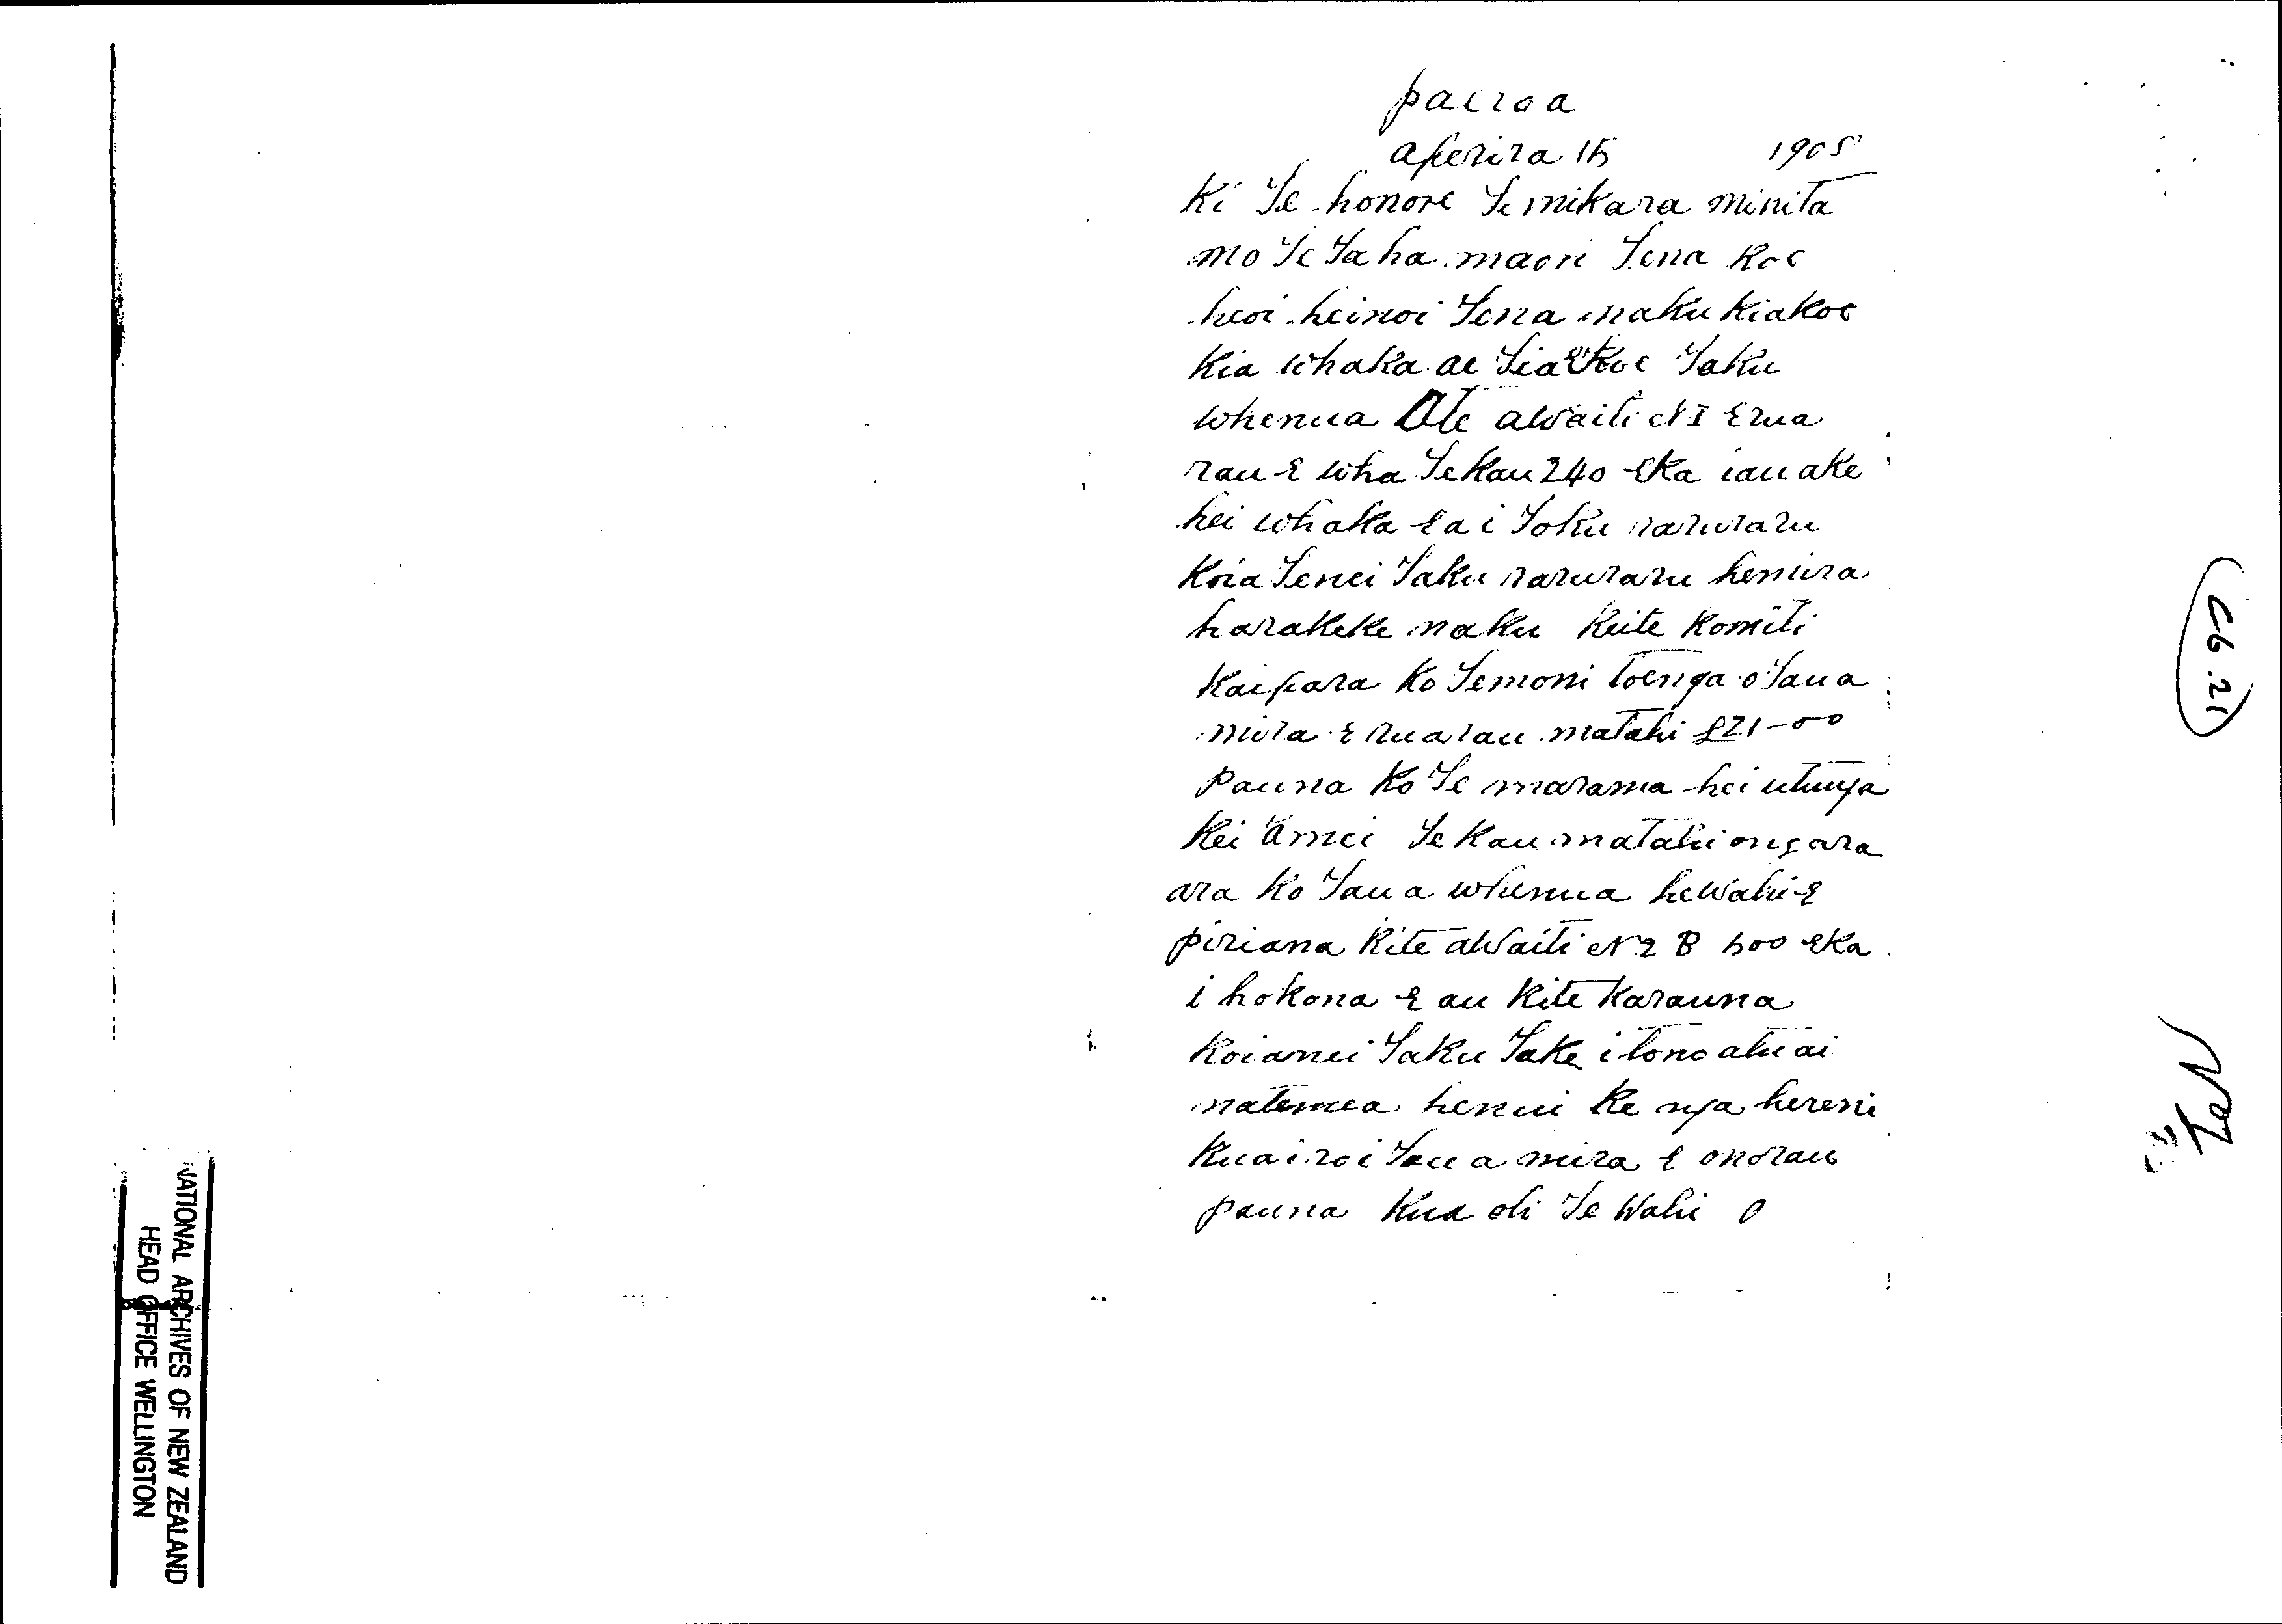 paeroa
aperira 15 1905
Ki Te honore Te mikara minita
mo Te Taha maori Tena Koe
heoi heinoi Tena naku kiakoe
Kia whaka ae Tia E Koe Taku
whenua Ote awaiti N I Erua
rau E wha Tekau 240 eka iau ake
hei whaka ea i Toku raruraru
Koia Tenei Taku raruraru hemira
harakeke naku Keite Komiti
Kaipara Ko Temoni toenga o Taua
mira E ruarau matahi £21-00
pauna Ko Te marama hei utunga
Kei Te Kau matahi ongara
ara Ko Taua whenua hewahi E
piriana Kite awaiti N 2 B 500 eka
i hokona E au Kite Karauna
Koianei Taku Take i tono atu ai
natemea henui Ke nga hereni
Kuairoi Taua mira E onorau
pauna Kua oti Te Wahi O
C6.21
NATIONAL ARCHIVES OF NEW ZEALAND
HEAD OFFICE WELLINGTON